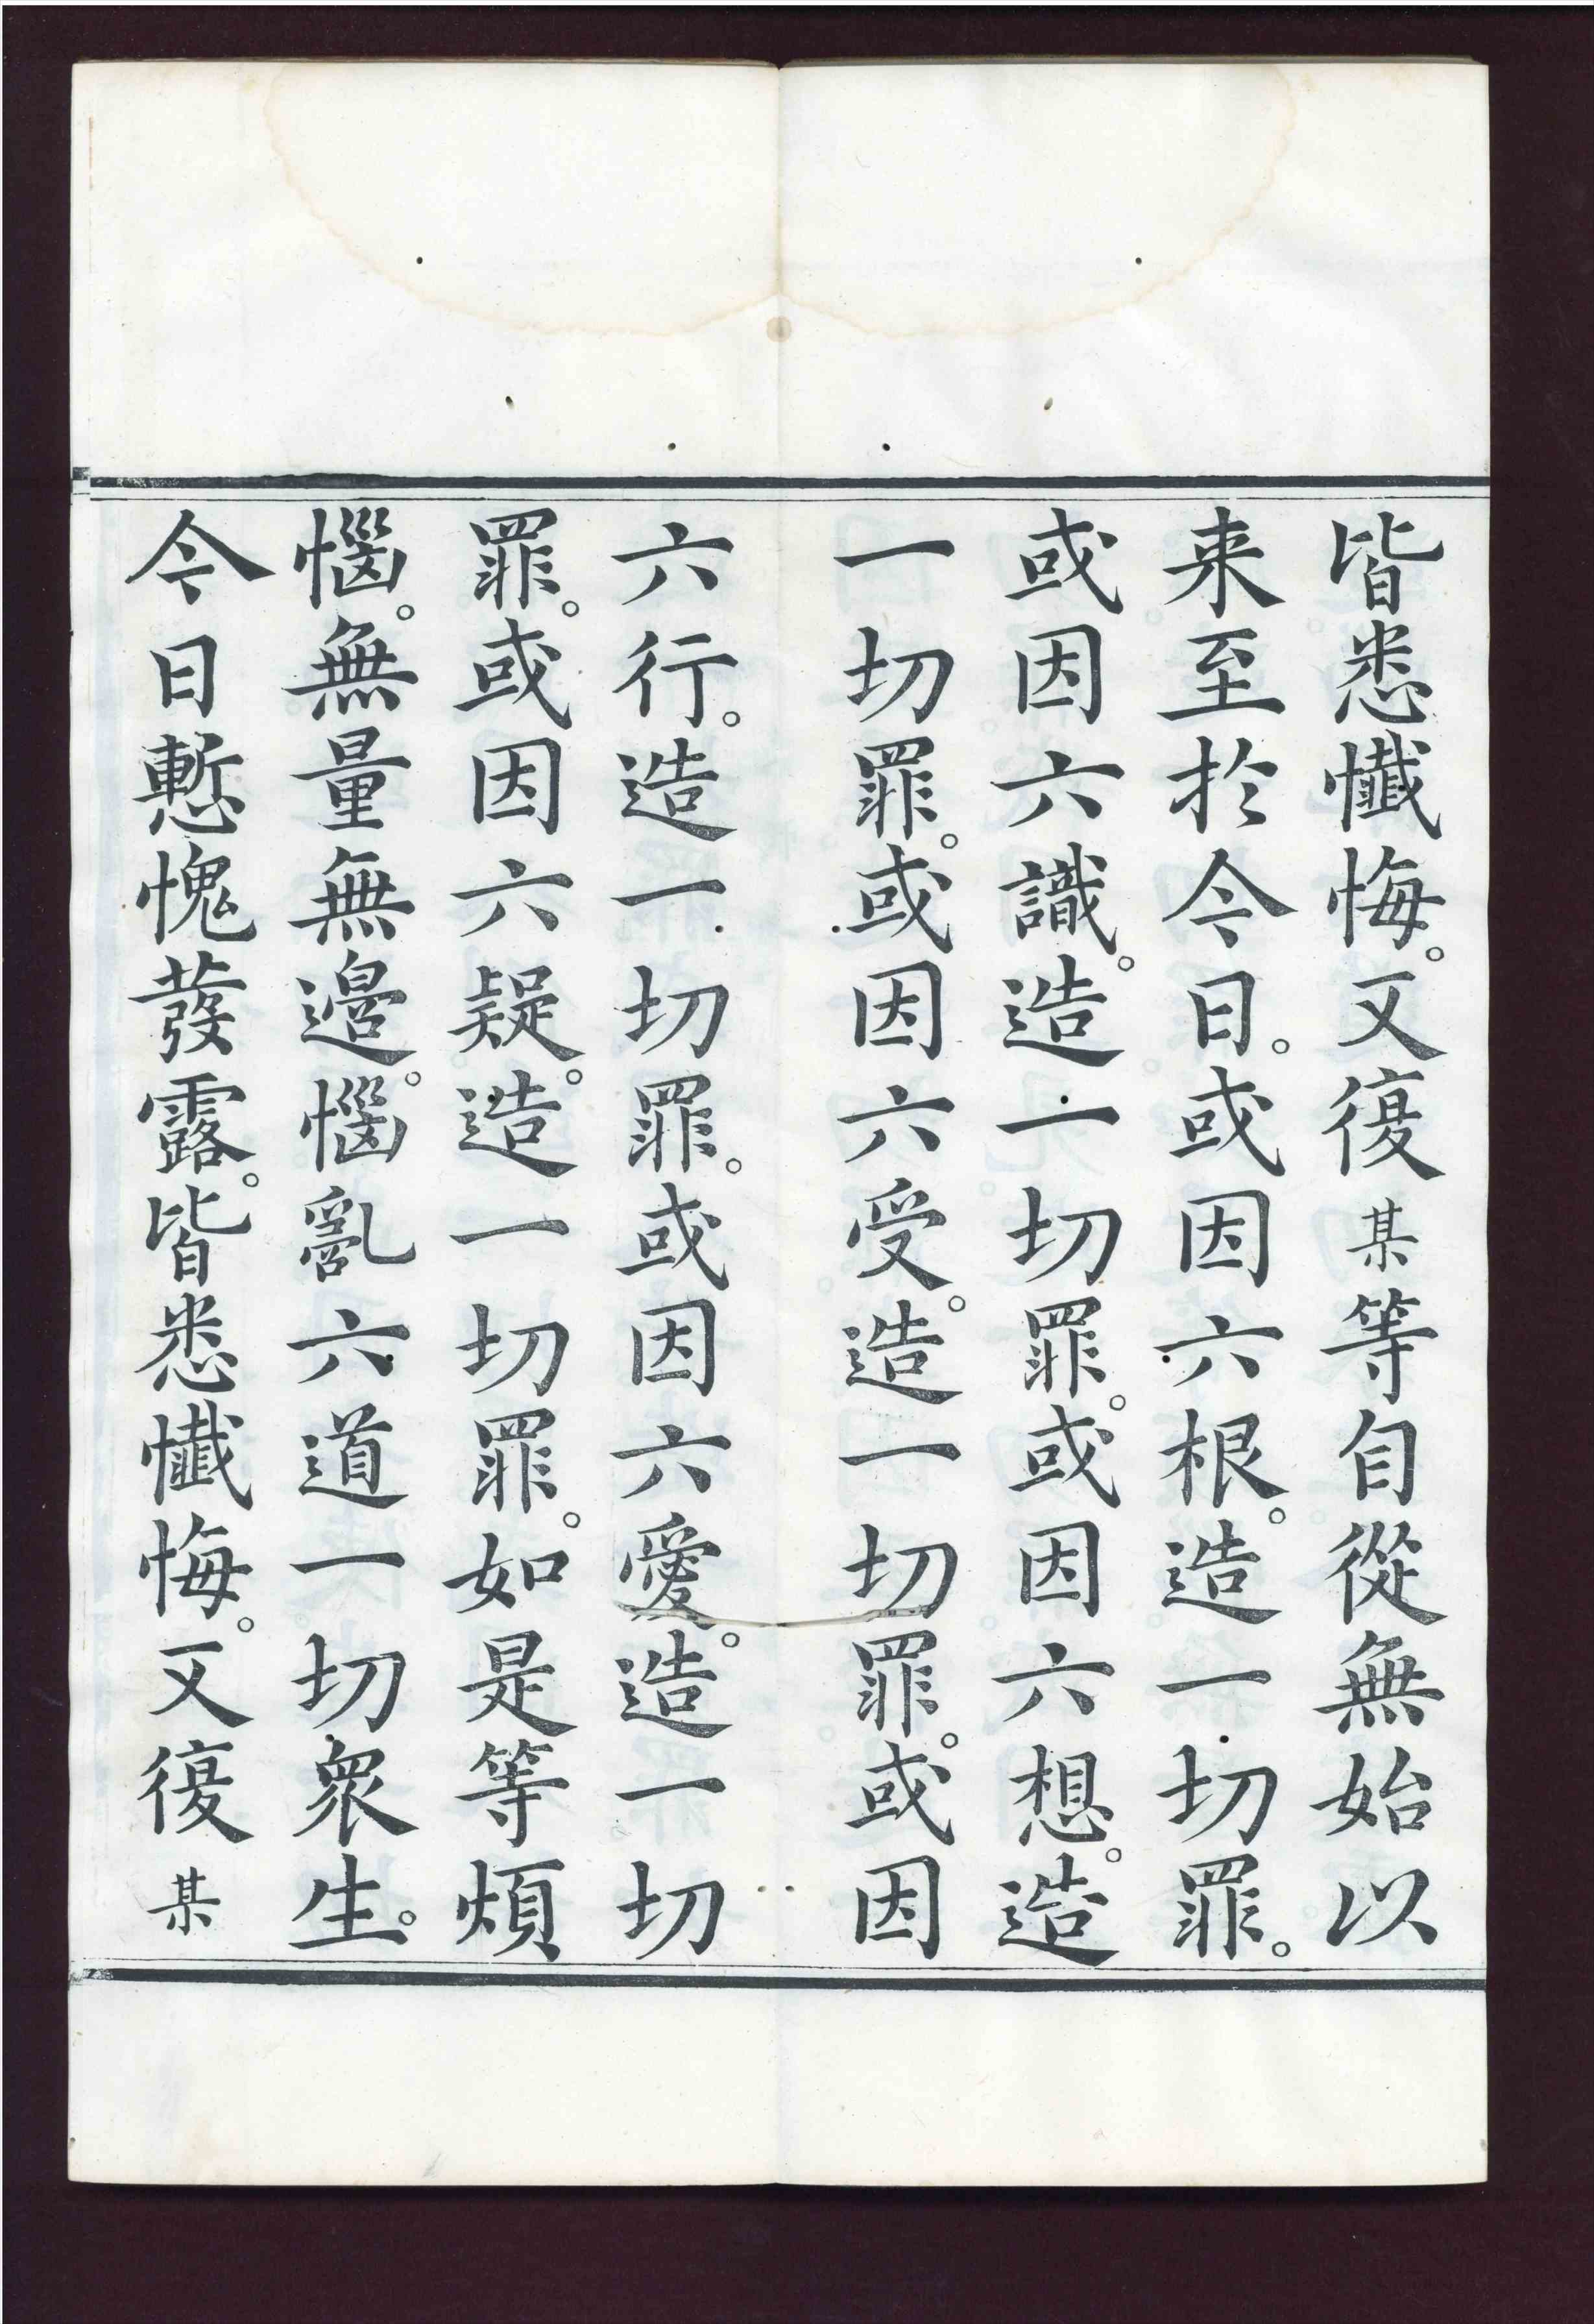 皆悉懺悔。又復某等自從無始以
来至於今日。或因六根。造一切罪。
或因六識。造一切罪。或因六想。造
一切罪。或因六受。造一切罪。或因
六行。造一切罪。或因六愛。造一切
罪。或因六疑。造一切罪。如是等煩
惱。無量無邊。惱亂六道一切衆生。
今日慙愧發露。皆悉懺悔。又復某